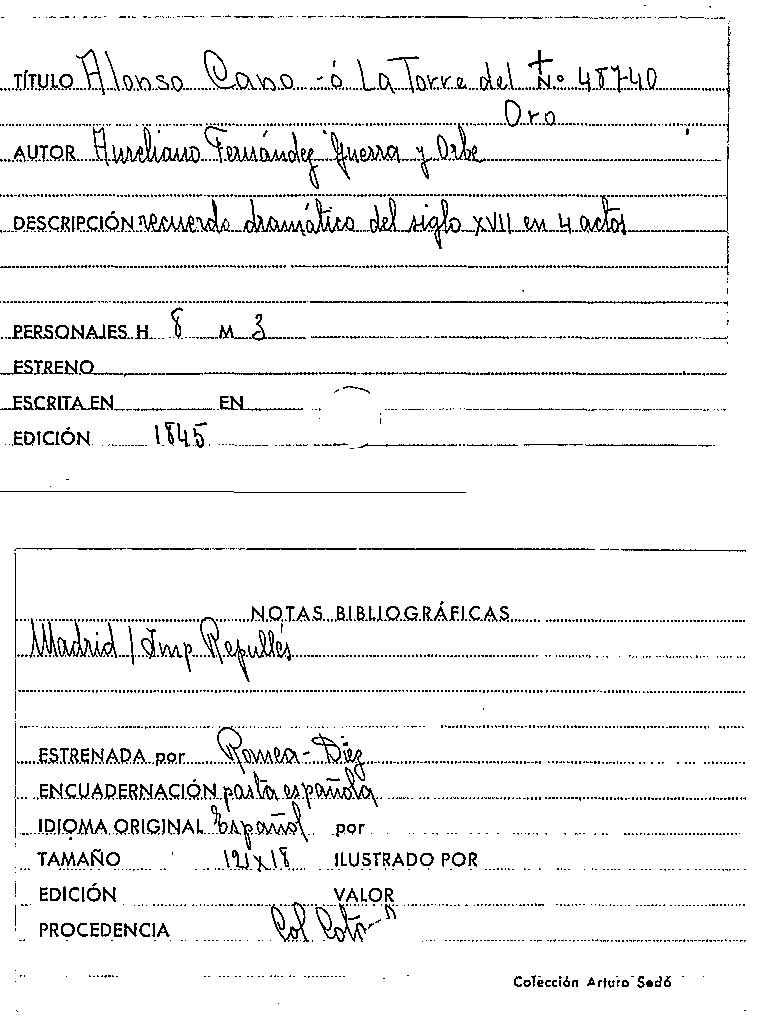 TÍTULO Alonso Cano -ó La Torre del Nº 48740
Oro
AUTOR Aureliano Fernández Guerra y Orbe
DESCRIPCIÓN recuerdo dramático del siglo XVII en 4 actos
PERSONAJES H 8 M 3
ESTRENO
ESCRITA EN EN
EDICIÓN 1845
NOTAS BIBLIOGRÁFICAS
Madrid / Imp Repullés
ESTRENADA por Romea - Díez
ENCUADERNACIÓN pasta española
IDIOMA ORIGINAL Español por
TAMAÑO ILUSTRADO POR
EDICIÓN VALOR
PROCEDENCIA Col
Colección Arturo Sedó